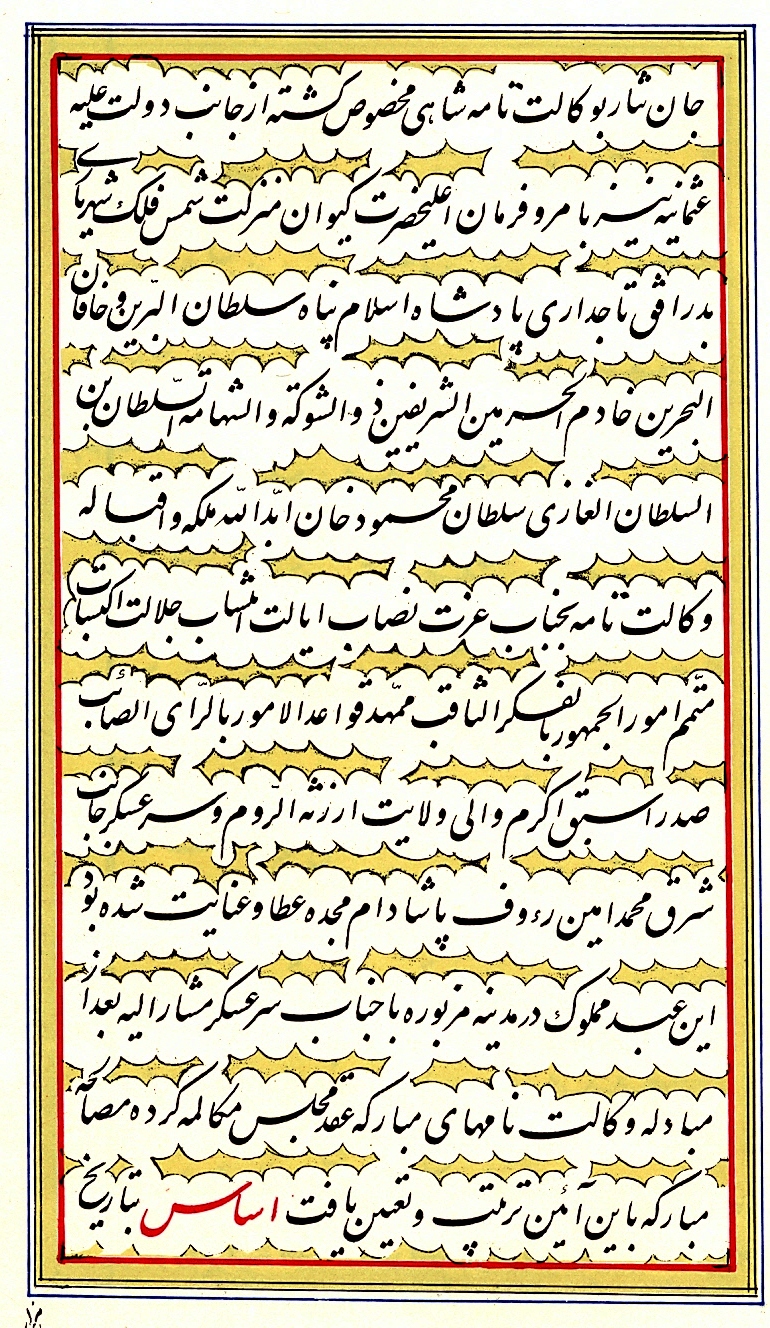 جان نثار بوکالت نامه شاهی مخصوص گشته از جانب دولت علیه
عثمانیه نیز بامر و فرمان اعلیحضرت کیوان منزلت شمس فلک شهریاری
بدر افق تاجداری پادشاه اسلام پناه سلطان البرین و خاقان
البحرین خادم الحرمین الشریفین ذو الشوکة و الشهامة السلطان بن
السلطان الغازی سلطان محمود خان ابد الله ملکه و اقباله
وکالت نامه بجناب عزت نصاب ایالت انتساب جلالت اکتساب
متمم امور الجمهور بالفکر الثاقب ممهد قواعد الامور بالرّای الصائب
صدر اسبق اکرم والی ولایت ارزنة الرّوم و سر عسکر جانب
شرق محمد امین رءوف پاشا دام مجده عطا و عنایت شده بود
این عبد مملوک در مدینه مزبوره با جناب سر عسکر مشار الیه بعد از
مبادله وکالت نامهای مبارکه عقد مجلس مکالمه کرده مصالحه
مبارکه باین آئین ترتیب و تعیین یافت اساس بتاریخ